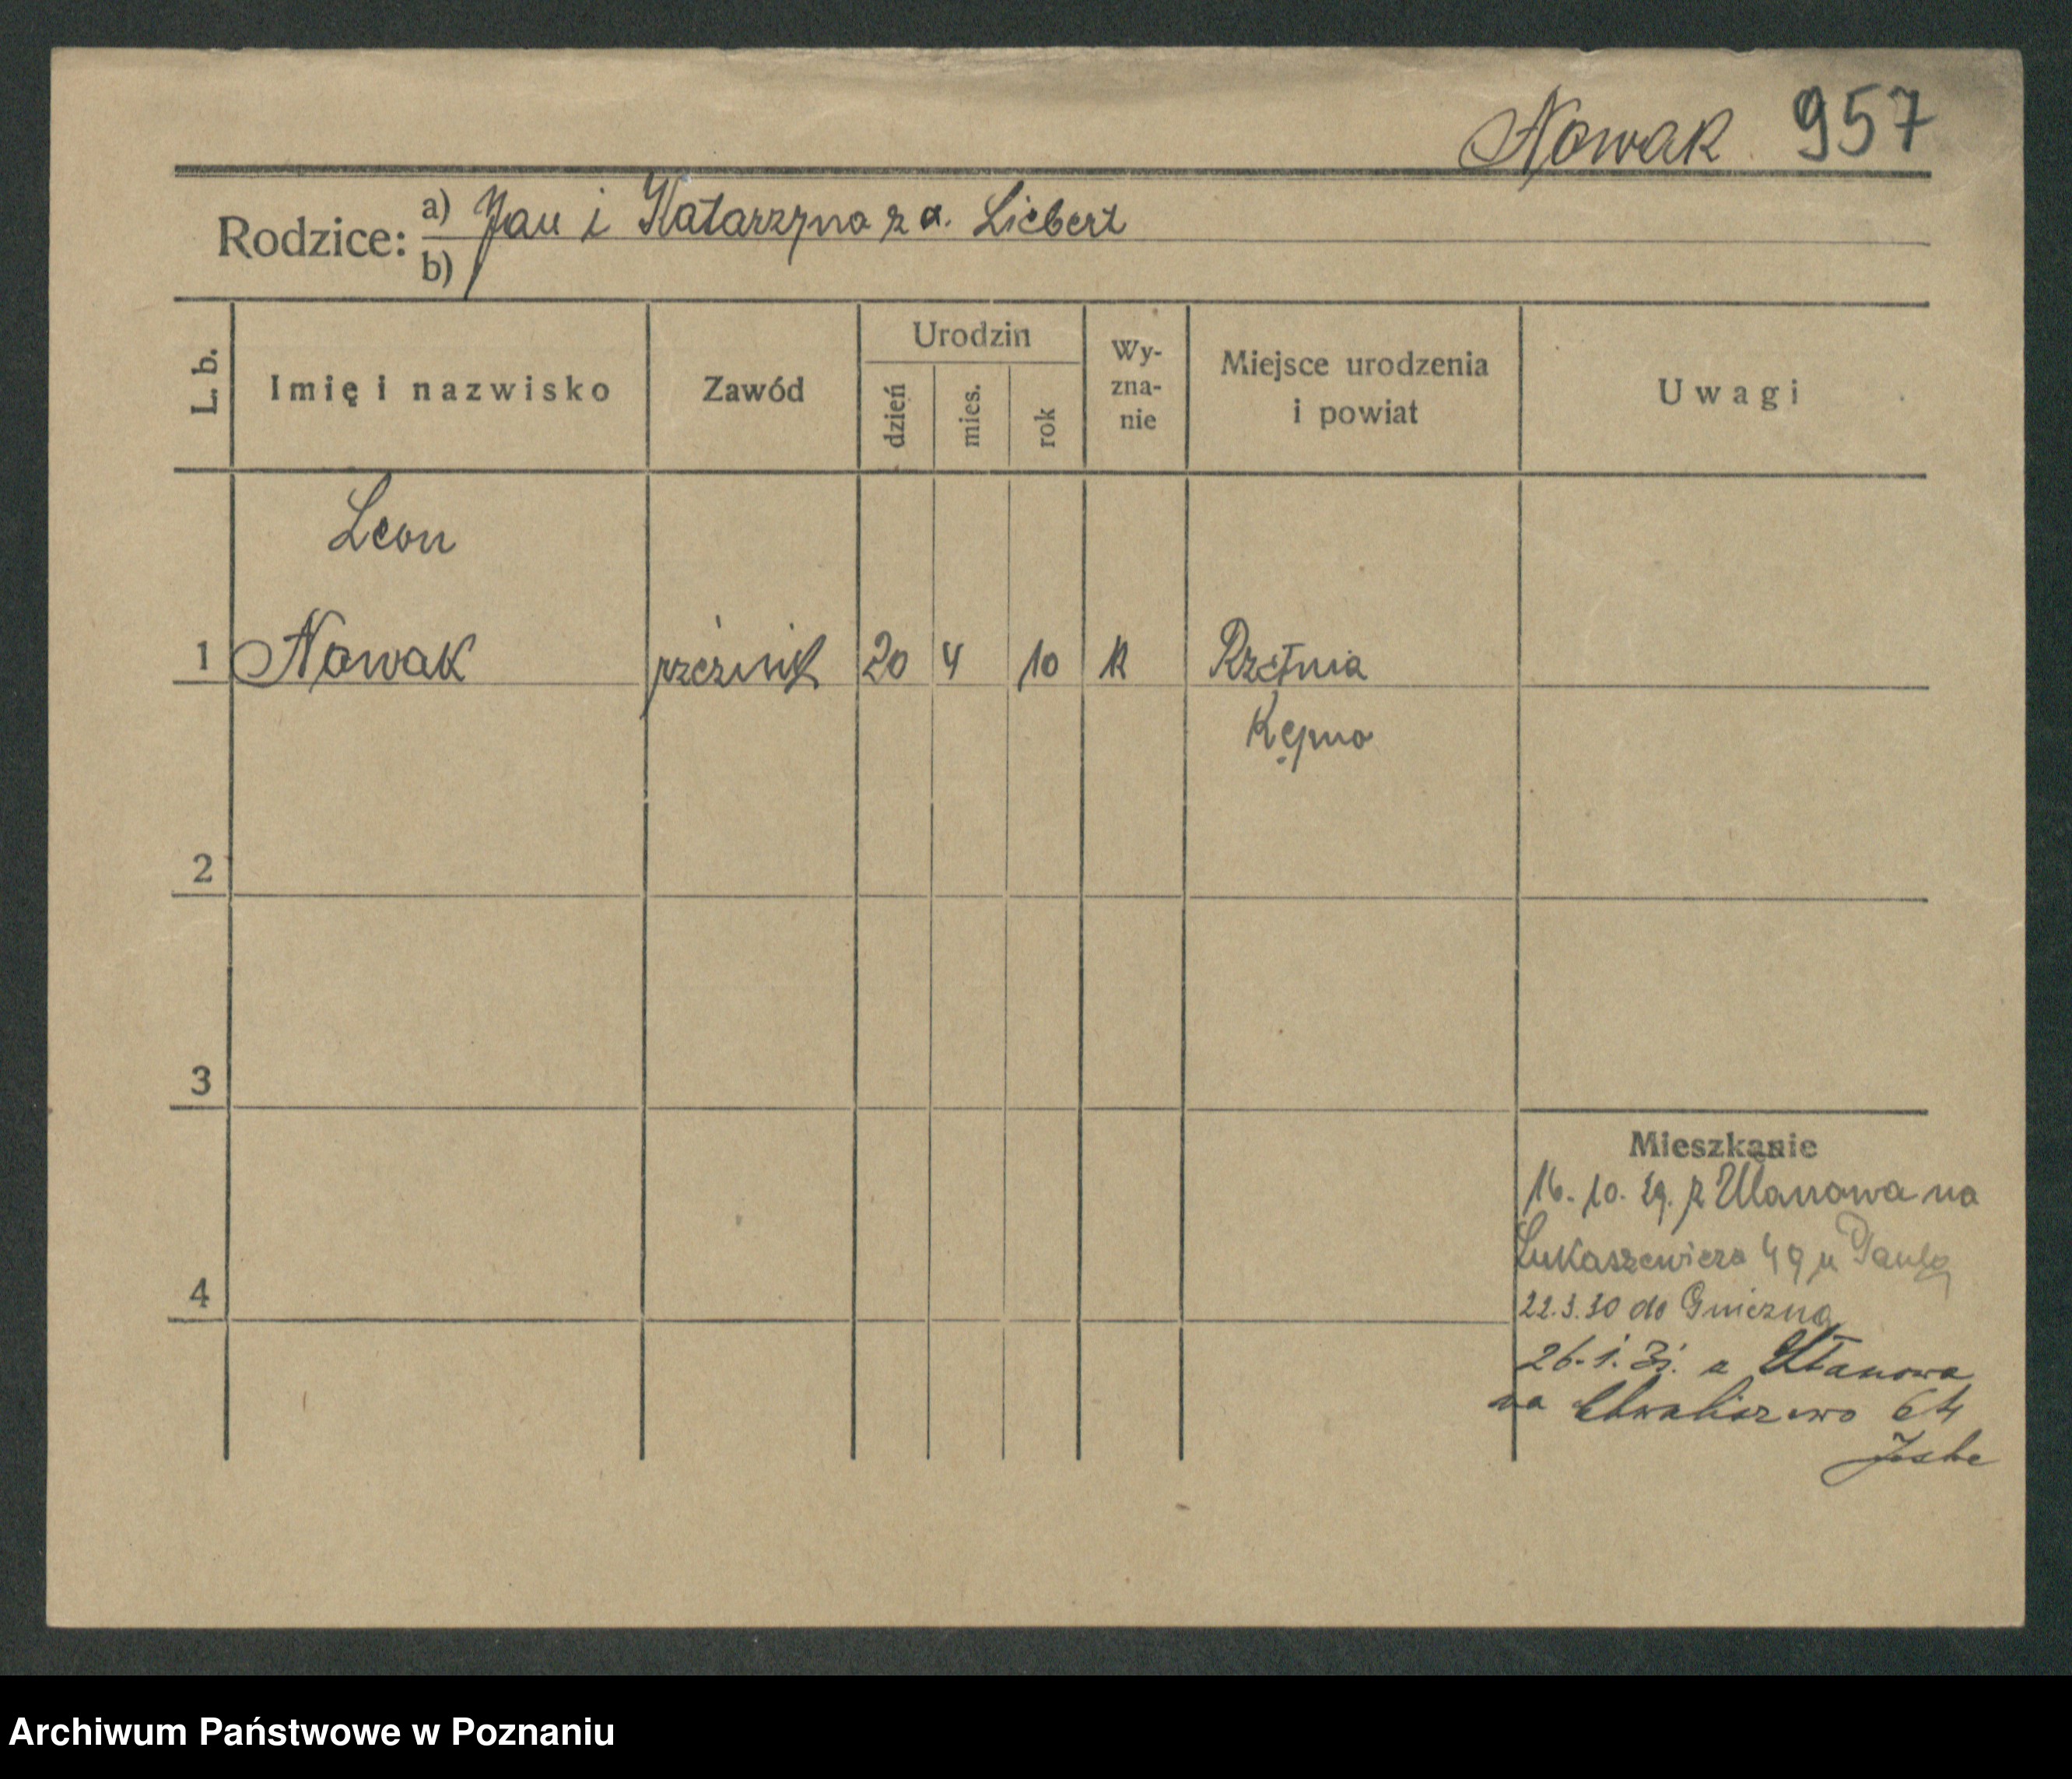 Nowak 957
Rodzice: a) Jan i Katarzyna z d. Liebert
b)
L. b. Imię i nazwisko Zawód Urodzin dzień mies. rok Wy-zna-nie Miejsce urodzenia i powiat Uwagi
Leon
1 Nowak rzeźnik 20 4 10 K Rzetnia
Kępno
2
3
Mieszkanie
16. 10. 29. z Ułanowa na
Łukaszewicza 49 u
4
22.3.30 do Gniezna
26.1.31. z Ułanowa
na Chwaliszewo 64
Archiwum Państwowe w Poznaniu